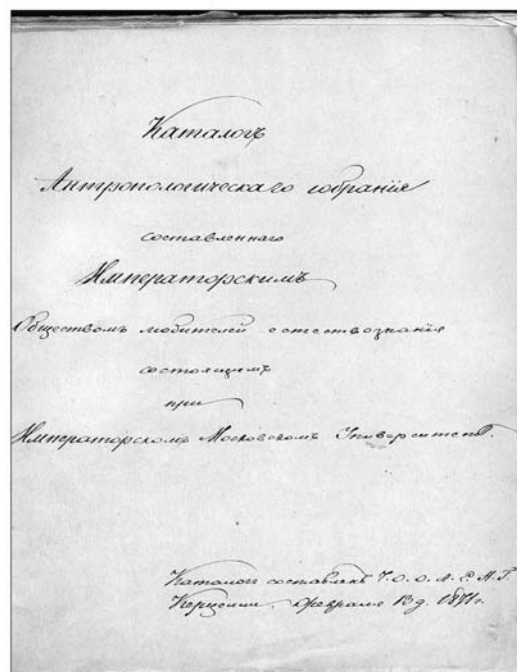 Каталогъ
Антропологическаго собранія
составленнаго
Императорскимъ
Обществомъ любителей естествознанія
состоящимъ
при
Императорскомъ Московскомъ Университетѣ.
Каталогъ составленъ Ч. О. О. Л. Е. А. Г.
Керцелли. Февраля 13 д. 1871 г.